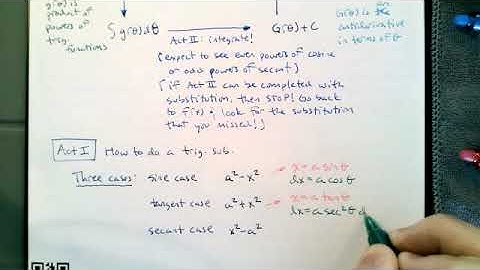 g(θ) is
product of
powers of
trig.
functions
∫ g(θ)dθ
Act II: integrate!
G(θ) + C
G(θ) is the
antiderivative
in terms of θ
(expect to see even powers of cosine
or odd powers of secant)
(if Act II can be completed with
substitution, then STOP! Go back
to f(x) & look for the substitution
that you missed!)
Act I How to do a trig. sub.
Three cases: sine case a²-x² → x = a sin θ
dx = a cos θ
tangent case a²+x² → x = a tan θ
dx = a sec²θ d
secant case x²-a²